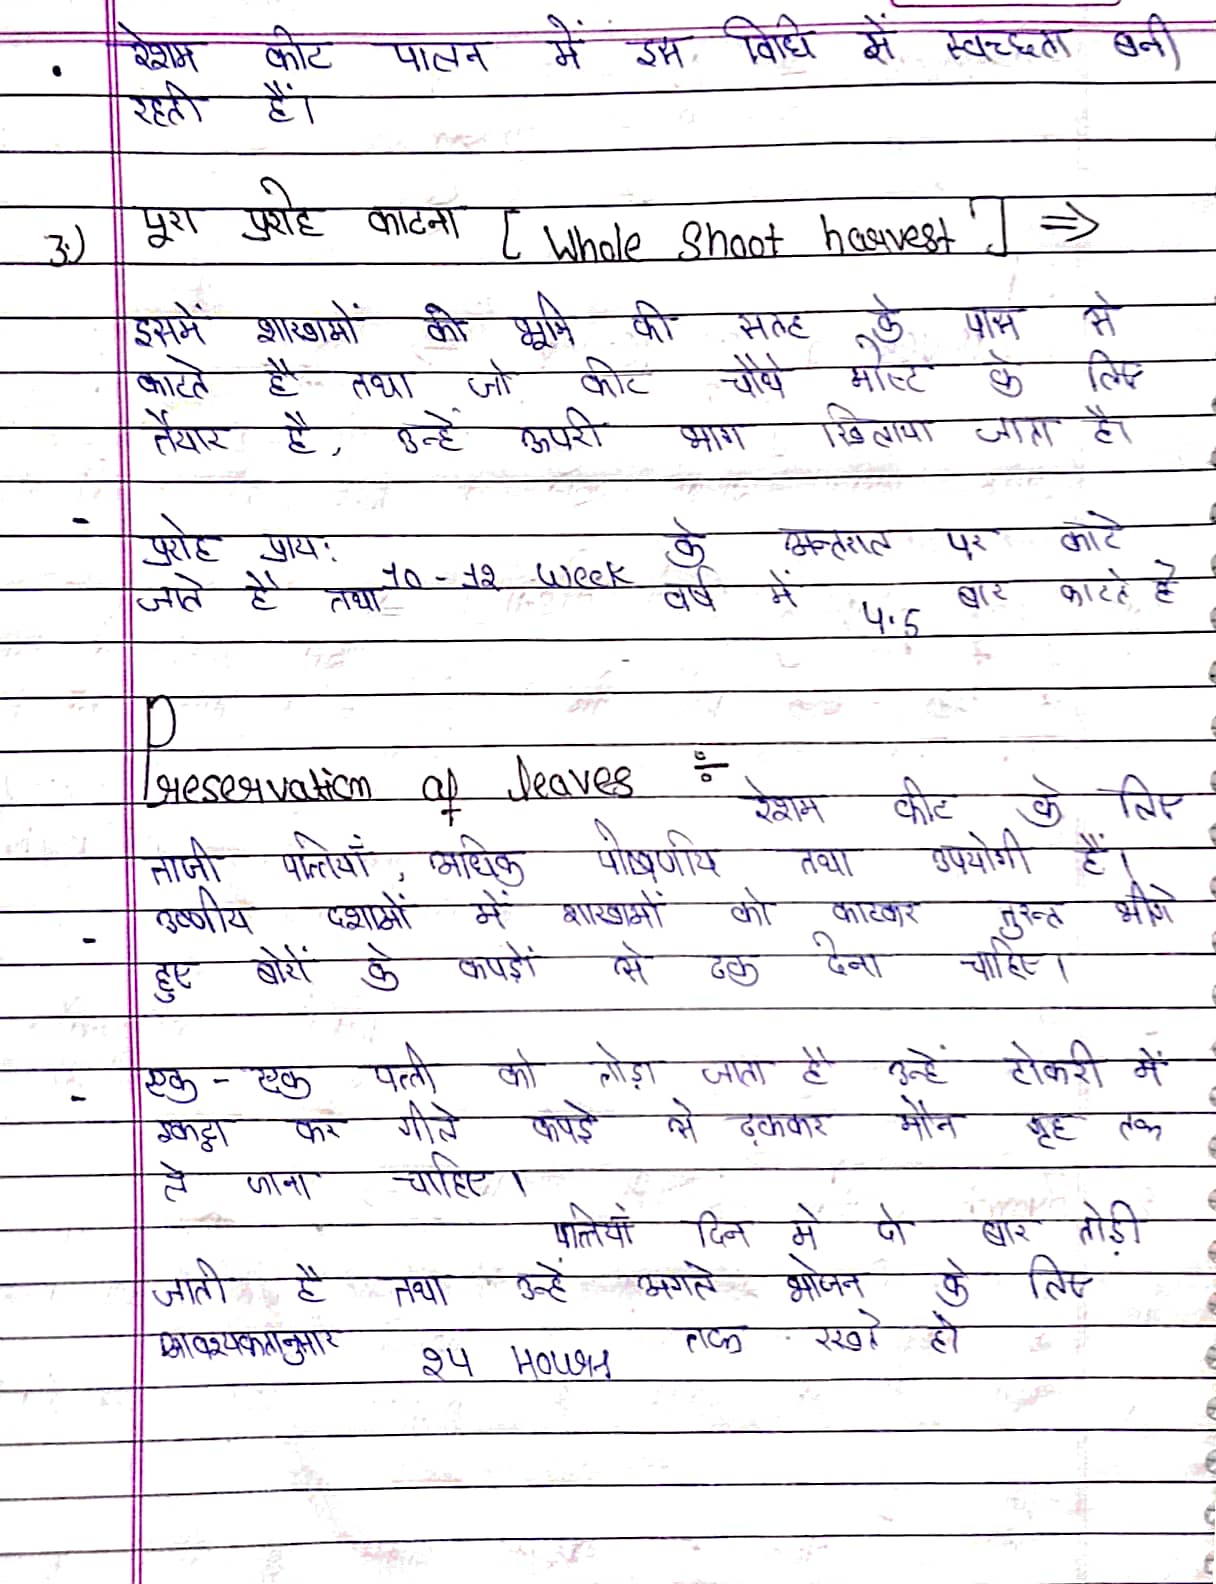 . रेशम कीट पालन में इस विधि में स्वच्छता बनी
रहती हैं।
3.) पूरा प्ररोह काटना [ Whole Shoot harvest ] ⇒
इसमें शाखाओं को भूमि की सतह के पास से
काटते हैं तथा जो कीट चौथे मोल्ट के लिए
तैयार है, उन्हें ऊपरी भाग खिलाया जाता है।
- प्ररोह प्राय: 10-12 Week के अन्तराल पर काटे
जाते है तथा वर्ष में 4.5 बार काटते है
Preservation of leaves ÷ रेशम कीट के लिए
ताजी पत्तियाँ, अधिक पोषणीय तथा उपयोगी हैं।
- उष्णीय दशाओं में शाखाओं को काटकर तुरन्त भीगे
हुए बोरों के कपड़ों से ढक देना चाहिए।
- एक - एक पत्ती को तोड़ा जाता है उन्हें टोकरी में
इकट्ठा कर गीले कपड़े से ढ़ककर मौन गृह तक
ले जाना चाहिए।
पत्तियाँ दिन मे दो बार तोड़ी
जाती है तथा उन्हें अगले भोजन के लिए
आवश्यकतानुसार 24 Hours तक रखते है।